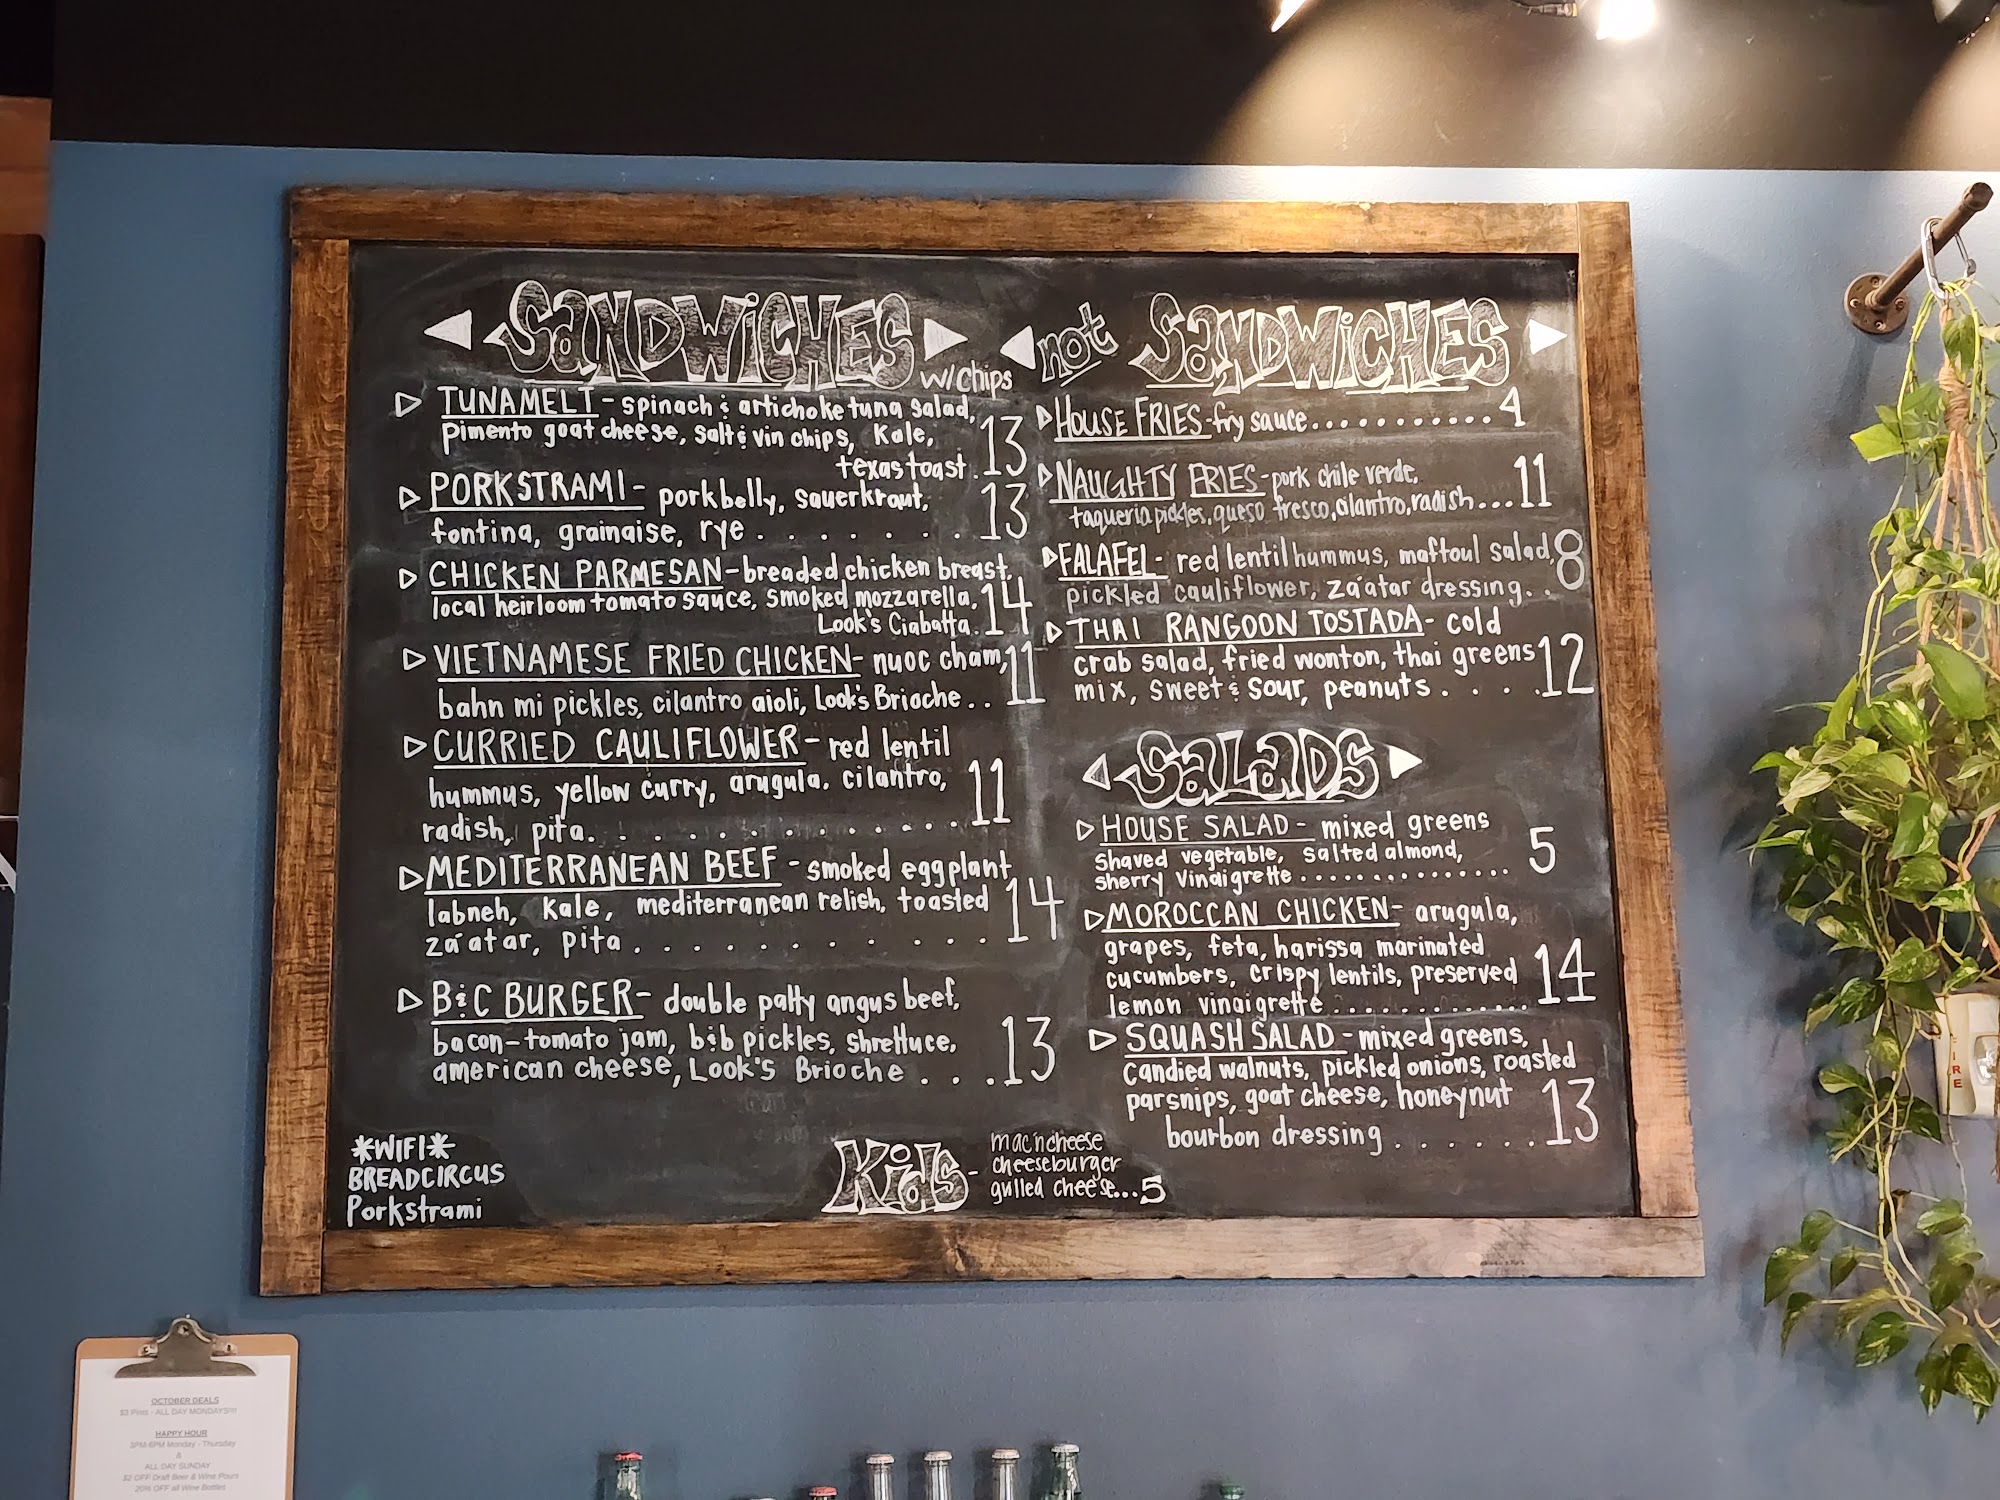 SANDWICHES
w/chips
TUNAMELT - spinach & artichoke tuna salad,
pimento goat cheese, salt & vin chips, kale,
texas toast . 13
PORKSTRAMI - porkbelly, sauerkraut,
fontina, grainaise, rye . . . . . . . 13
CHICKEN PARMESAN - breaded chicken breast,
local heirloom tomato sauce, smoked mozzarella,
Look's Ciabatta . 14
VIETNAMESE FRIED CHICKEN - nuoc cham,
bahn mi pickles, cilantro aioli, Look's Brioche . . 11
CURRIED CAULIFLOWER - red lentil
hummus, yellow curry, arugula, cilantro,
radish, pita . . . . . . . . . . . . . 11
MEDITERRANEAN BEEF - smoked eggplant
labneh, kale, mediterranean relish, toasted
za'atar, pita . . . . . . . . . . . . 14
B&C BURGER - double patty angus beef,
bacon-tomato jam, b&b pickles, shrettuce,
american cheese, Look's Brioche . . . 13
not SANDWICHES
HOUSE FRIES - fry sauce . . . . . . . . . . . 4
NAUGHTY FRIES - pork chile verde,
taqueria pickles, queso fresco, cilantro, radish . . . 11
FALAFEL - red lentil hummus, maftoul salad,
pickled cauliflower, za'atar dressing . . 8
THAI RANGOON TOSTADA - cold
crab salad, fried wonton, thai greens
mix, sweet & sour, peanuts . . . . . 12
SALADS
HOUSE SALAD - mixed greens
shaved vegetable, salted almond,
sherry vinaigrette . . . . . . . . . . . . . . . 5
MOROCCAN CHICKEN - arugula,
grapes, feta, harissa marinated
cucumbers, crispy lentils, preserved
lemon vinaigrette . . . . . . . . . . . . . 14
SQUASH SALAD - mixed greens,
candied walnuts, pickled onions, roasted
parsnips, goat cheese, honeynut
bourbon dressing . . . . . . 13
*WIFI*
BREADCIRCUS
Porkstrami
Kids -
mac'n cheese
cheeseburger
grilled cheese...5
FIRE
OCTOBER DEALS
$3 Pints - ALL DAY MONDAYS!!!!
HAPPY HOUR
3PM-6PM Monday - Thursday
&
ALL DAY SUNDAY
$2 OFF Draft Beer & Wine Pours
20% OFF all Wine Bottles